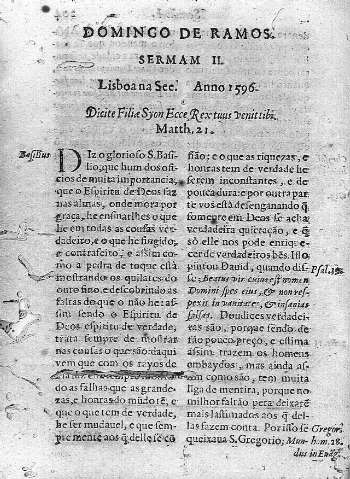 DOMINGO DE RAMOS.
SERMAM II.
Lisboa na See. Anno 1596.
Dicite Filiæ Syon Ecce Rex tuus venit tibi.
Matth. 21.
Basilius
DIz o glorioso S. Basi-
lio, que hum dos ofi-
cios de muita importancia,
que o Espiritu de Deos faz
nas almas, onde mora por
graça, he ensinarlhes o que
he em todas as cousas ver-
dadeiro, e o que he fingido,
e contrafeito, e assim co-
mo a pedra de toque está
mostrando os quilates do
ouro fino, e descobrindo as
faltas do que o não he: as-
sim sendo o Espiritu de
Deos espiritu de verdade,
trata sempre de mostrar
nas cousas o que são: daqui
vem que com os rayos de
do as falhas que as grande-
zas, e honras do mũdo tẽ, e
que o que tem de verdade,
he ser mudavel, e que sem-
pre mente aos q̃ delle se cõ
fião; e o que as riquezas, e
honras tem de verdade he
serem inconstantes, e de
pouca dura: e por outra par
te vos está desenganando q̃
somẽte em Deos se acha
verdadeira quietação, e q̃
só elle nos pode enrique-
cer de verdadeiros bẽs. Isso
pintou David, quando dis-
se: Beatus vir cuius est nomen
Domini spes eius, & non res-
pexit in vanitates, & insanias
falsas. Doudices verdadei-
ras são, porque sendo de
tão pouco preço, e estima
assim trazem os homens
embaydos, mas ainda as-
sim como são, tem muita
liga de mentira, porque no
milhor faltão pera deixarẽ
mais lastimados aos q̃ del-
las fazem conta. Por isso se
queixava S. Gregorio,
Psal.
Gregori.
Mun- h. m. 28.
dus in